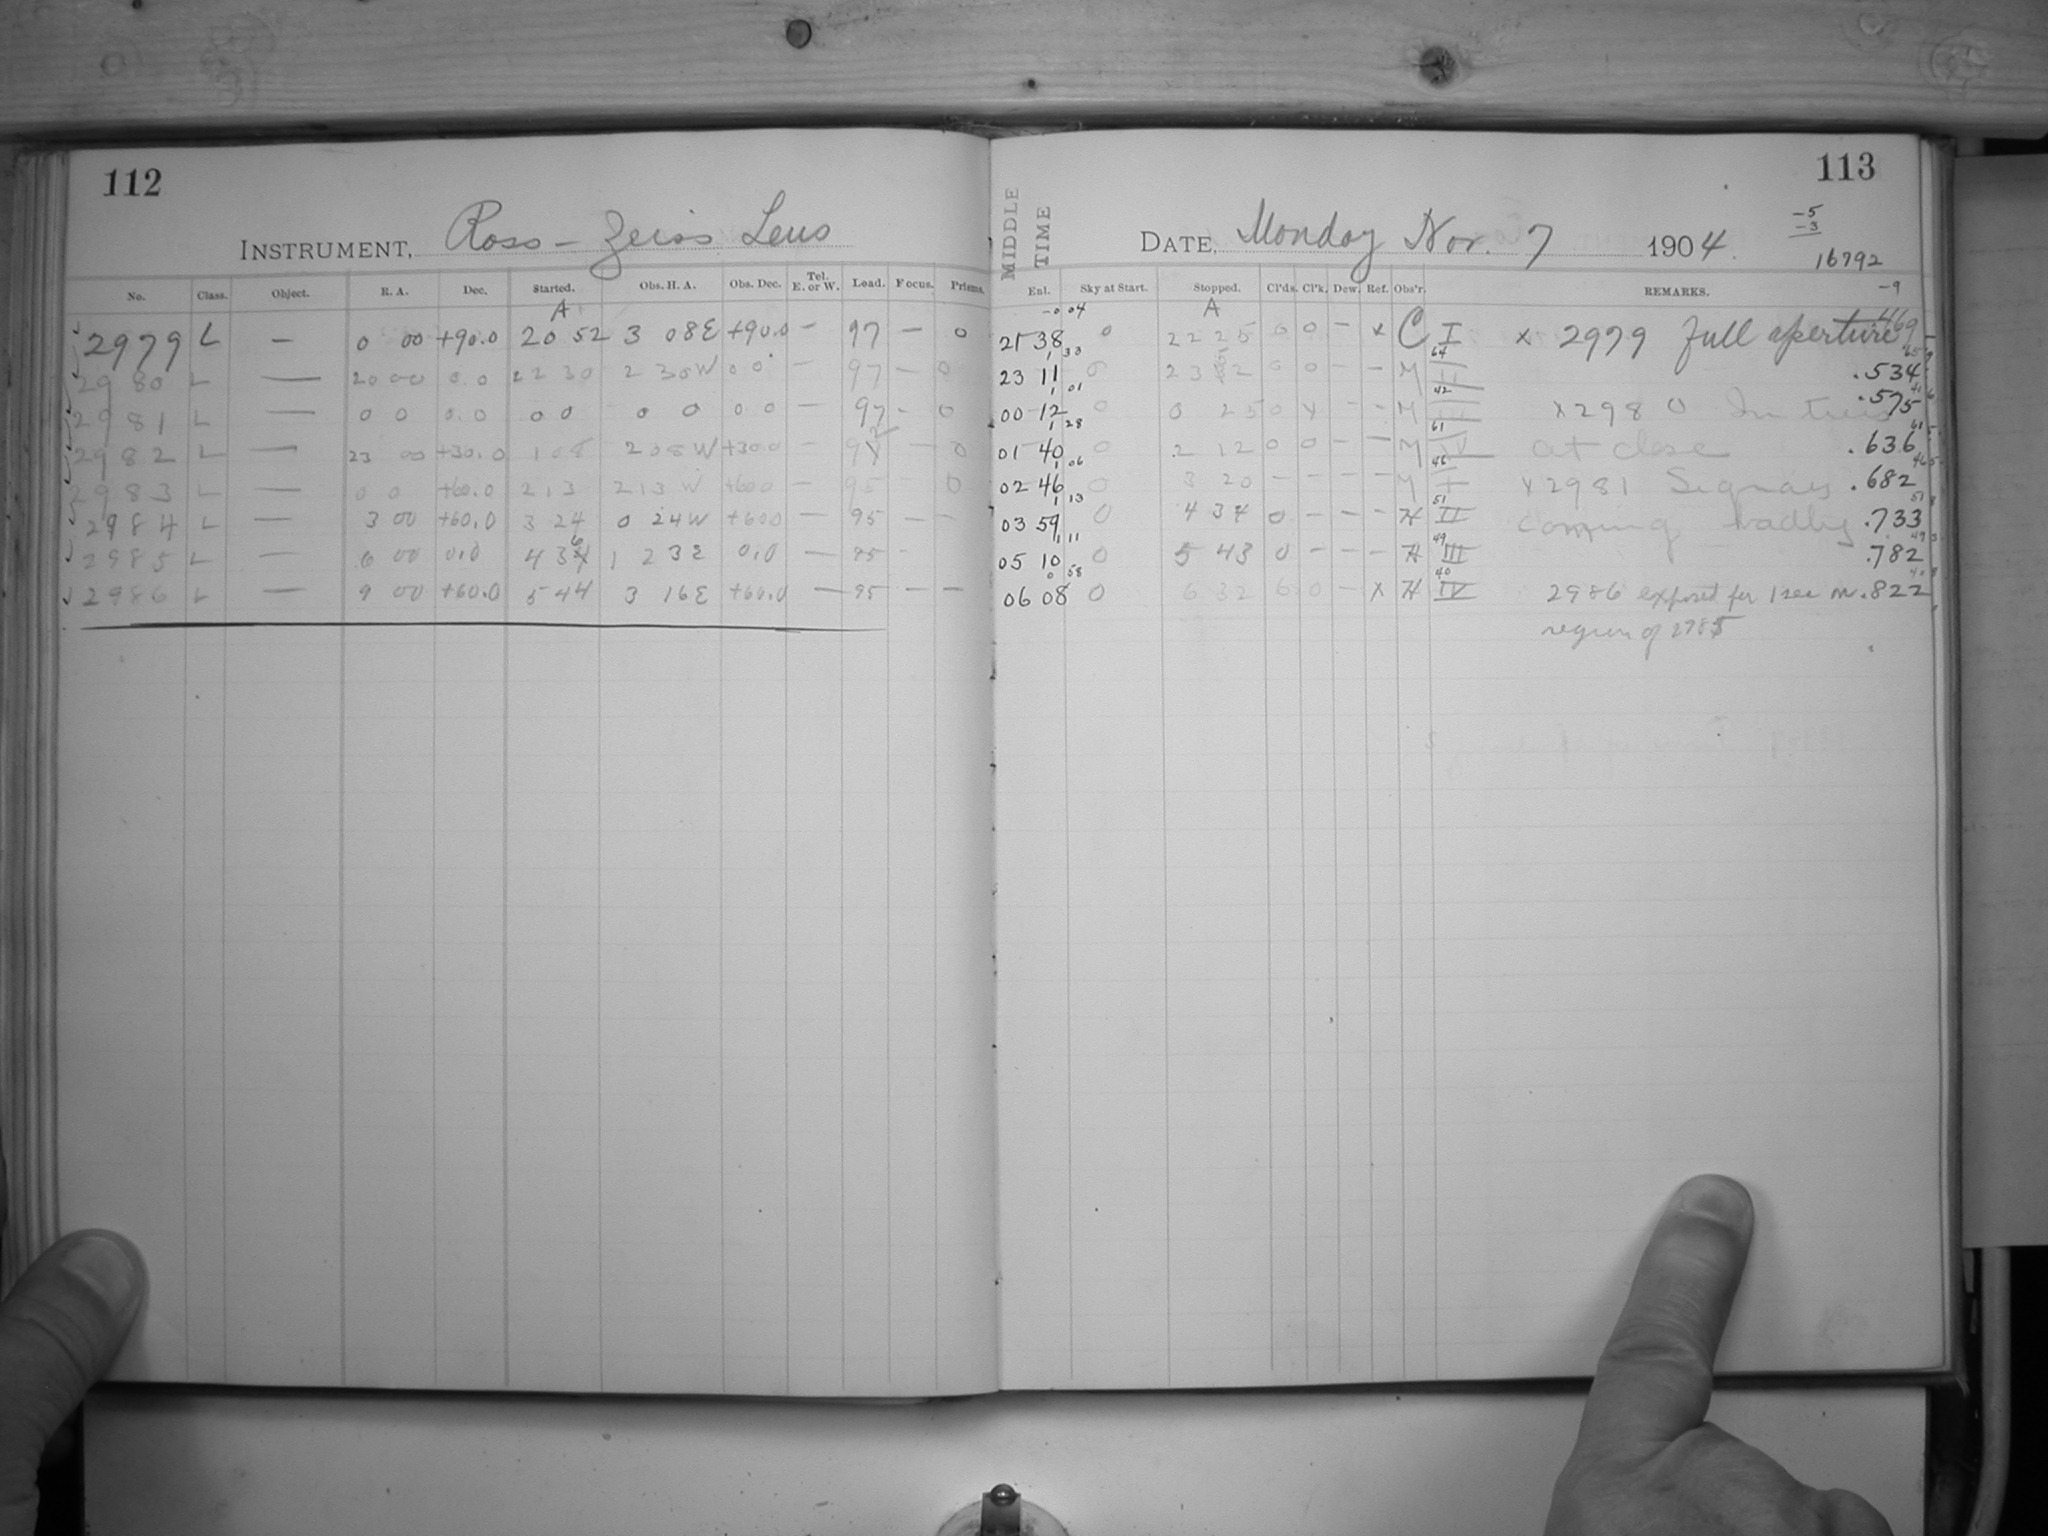 112
INSTRUMENT, Ross-Zeiss Lens
No. Class. Object. R. A. Dec. Started. Obs. H. A. Obs. Dec. Tel. E. or W. Load. Focus. Prisms.
A
2979 L — 0 00 +90.0 20 52 3 08E +90.0 — 97 — 0
2980 L — 20 00 0.0 22 30 2 30W 0 0 — 97 — 0
2981 L — 0 0 0.0 0 0 0 0 0 0 — 97 - 0
2982 L — 23 00 +30.0 1 08 2 08W +30.0 — — 0
2983 L — 0 0 +60.0 2 13 2 13 W +60.0 — 95 — 0
2984 L — 3 00 +60.0 3 24 0 24W +60.0 — 95 — —
2985 L — 6 00 0.0 4 36 1 23E 0.0 — 95 -
2986 L — 9 00 +60.0 5 44 3 16E +60.0 — 95 — —
113
MIDDLE TIME
DATE, Monday Nov. 7 1904.
-5
-3
16792
-9
Enl. Sky at Start. Stopped. Cl'ds. Cl'k. Dew. Ref. Obs'r. REMARKS.
A
21 38 0 22 25 0 0 — x C I x 2979 Full aperture
23 11 0 0 0 — — M II .534
00 12 0 0 25 0 x - - M III x 2980 In trees .575
01 40 0 2 12 0 0 — — M IV at close .636
02 46 0 3 20 — — — — M I x 2981 Signals .682
03 59 0 4 34 0 — — — H II coming badly .733
05 10 0 5 43 0 — — — H III .782
06 08 0 6 32 0 0 — x H IV 2986 exposed for 1 sec in .822
region of 2985